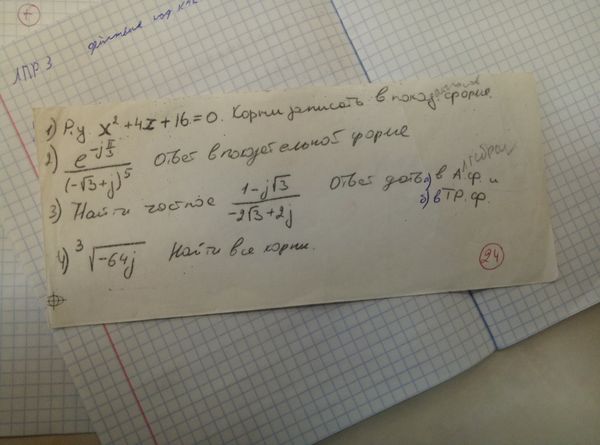 ЛПР 3
действия над К.Ч.
1) Р.у. x² + 4x + 16 = 0. Корни записать в показательной форме
2) e^(-jπ/3) / (-√3 + j)^5 Ответ в показательной форме
3) Найти частное (1 - j√3) / (-2√3 + 2j) Ответ дать а) в А.ф. и
алгебра
б) в ТР.ф.
4) ³√(-64j) Найти все корни.
24